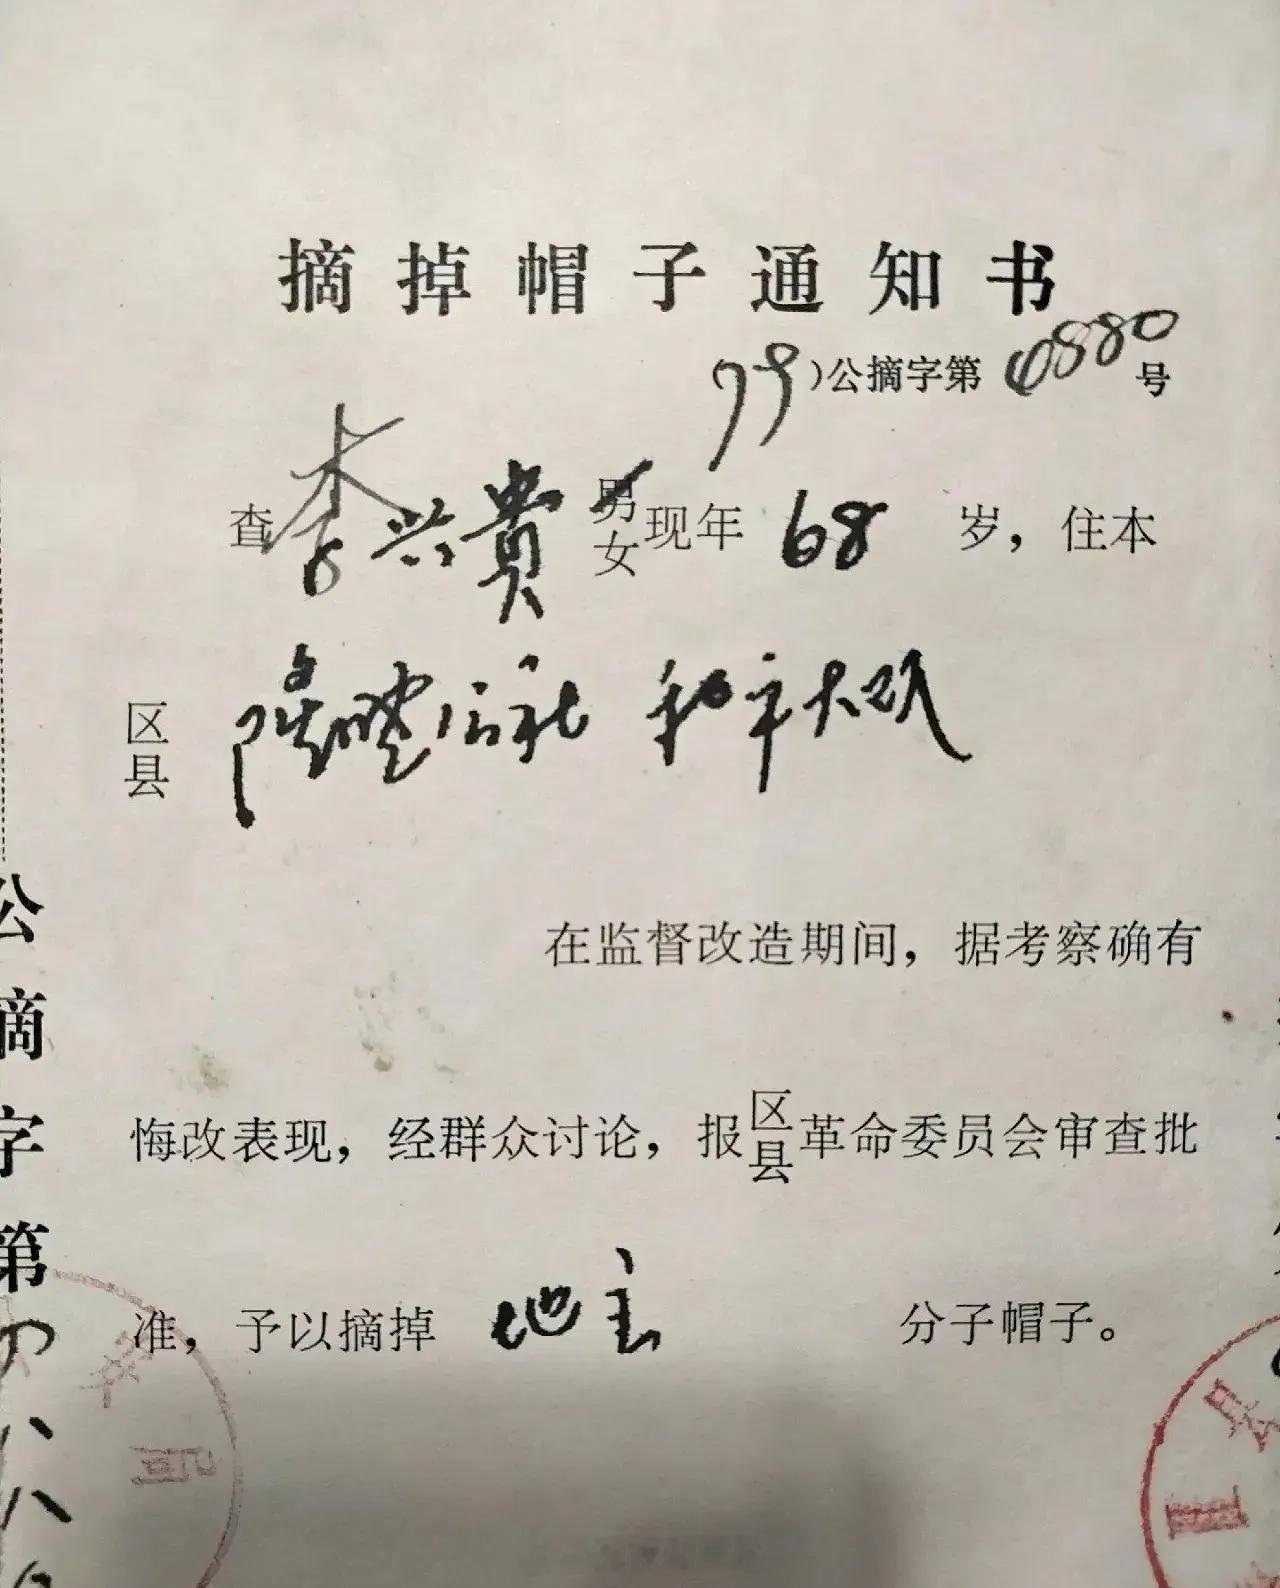 摘掉帽子通知书
(79)公摘字第4880号
查李兴贵 男 女 现年68岁，住本
区 县 隆盛公社 和平大队
在监督改造期间，据考察确有
悔改表现，经群众讨论，报区 县 革命委员会审查批
准，予以摘掉 地主 分子帽子。
公摘字第四八八
安局
县